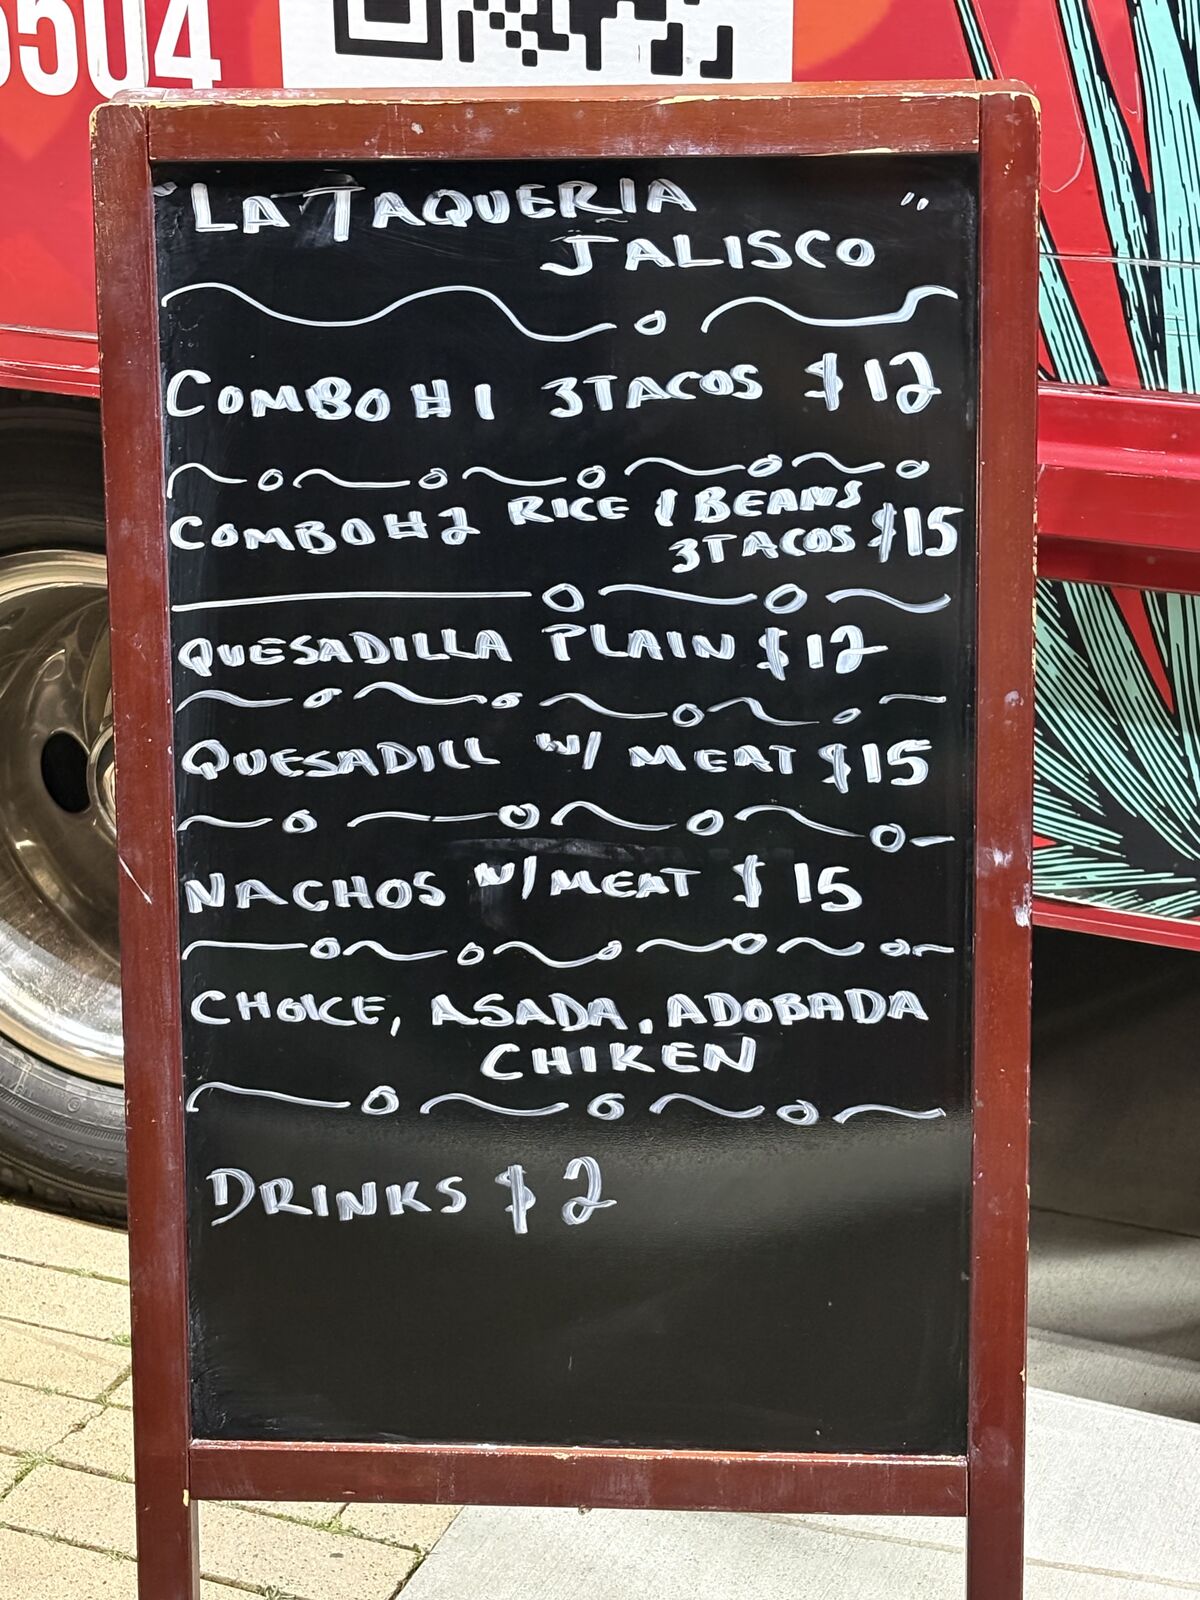 5504
"LA TAQUERIA "
JALISCO
COMBO #1 3 TACOS $12
COMBO #2 RICE & BEANS
3 TACOS $15
QUESADILLA PLAIN $12
QUESADILL W/ MEAT $15
NACHOS W/ MEAT $15
CHOICE, ASADA, ADOBADA
CHIKEN
DRINKS $2